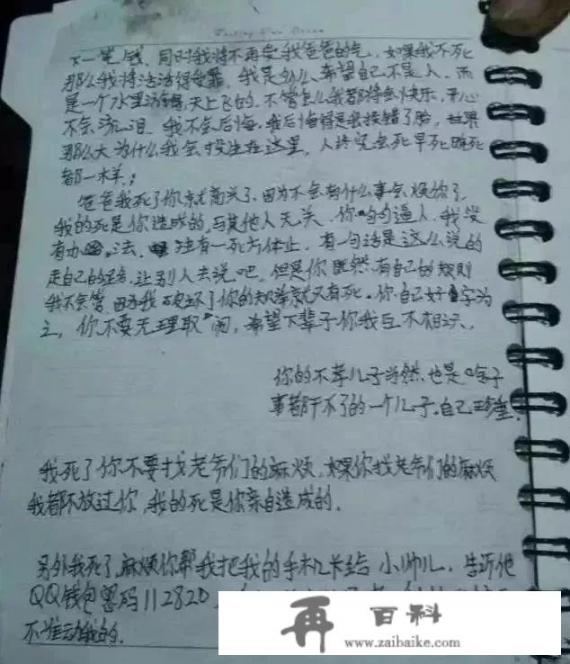 下一笔钱，同时我将不再受我爸爸的气，如果我不死
那么我将活活得受罪。我是多么希望自己不是人，而
是一个水里游的，天上飞的，不管怎么我都将会快乐，开心
不会流泪，我不会后悔，我后悔得是我投错了胎，世界
那么大为什么我会投生在这里，人终究会死早死晚死
都一样，
爸爸我死了你就高兴了，因为不会有什么事会烦你了，
我的死是你造成的，与其他人无关，你句句逼人，我没
有办法，独有一死方休止，有一句话是这么说的
走自己的路，让别人去说吧，但是你既然有自己的规则
我不会管，因为我破坏了你的规举就只有死，你自己好字为
之，你不要无理取闹，希望下辈子你我互不相识。
你的不孝儿子当然也是啥子
事都干不了的一个儿子，自己珍重
我死了你不要找老爷们的麻烦，如果你找老爷们的麻烦
我都不放过你，我的死是你亲自造成的，
另外我死了，麻烦你帮我把我的手机卡给小帅儿，告诉他
QQ钱包密码112820
不准动我的。
Writing Your Dream
再 百科
www.zaibaike.com